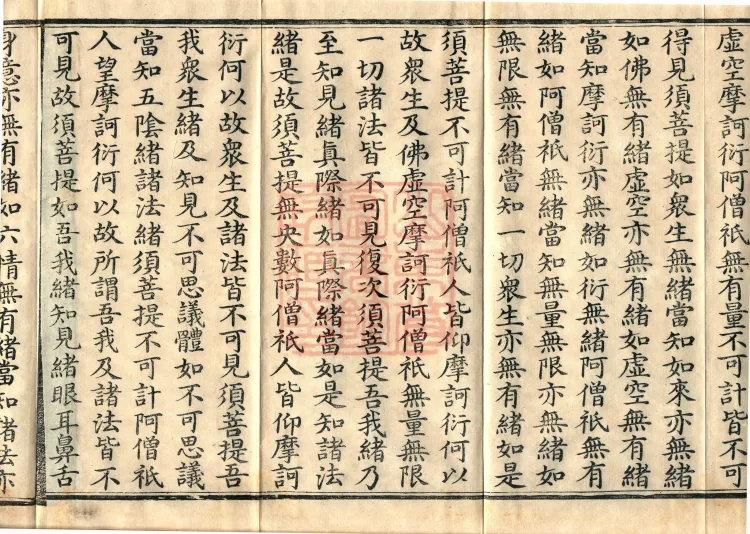 虛空摩訶衍阿僧祇無有量不可計皆不可
得見須菩提如眾生無緒當知如來亦無緒
如佛無有緒虛空亦無有緒如虛空無有緒
當知摩訶衍亦無緒如衍無緒阿僧祇無有
緒如阿僧祇無緒當知無量無限亦無緒如
無限無有緒當知一切眾生亦無有緒如是
須菩提不可計阿僧祇人皆仰摩訶衍何以
故眾生及佛虛空摩訶衍阿僧祇無量無限
一切諸法皆不可見復次須菩提吾我緒乃
至知見緒真際緒如真際緒當如是知諸法
緒是故須菩提無央數阿僧祇人皆仰摩訶
衍何以故眾生及諸法皆不可見須菩提吾
我眾生緒及知見不可思議體如不可思議
當知五陰緒諸法緒須菩提不可計阿僧祇
人望摩訶衍何以故所謂吾我及諸法皆不
可見故須菩提如吾我緒知見緒眼耳鼻舌
身意亦無有緒如六情無有緒當知諸法亦